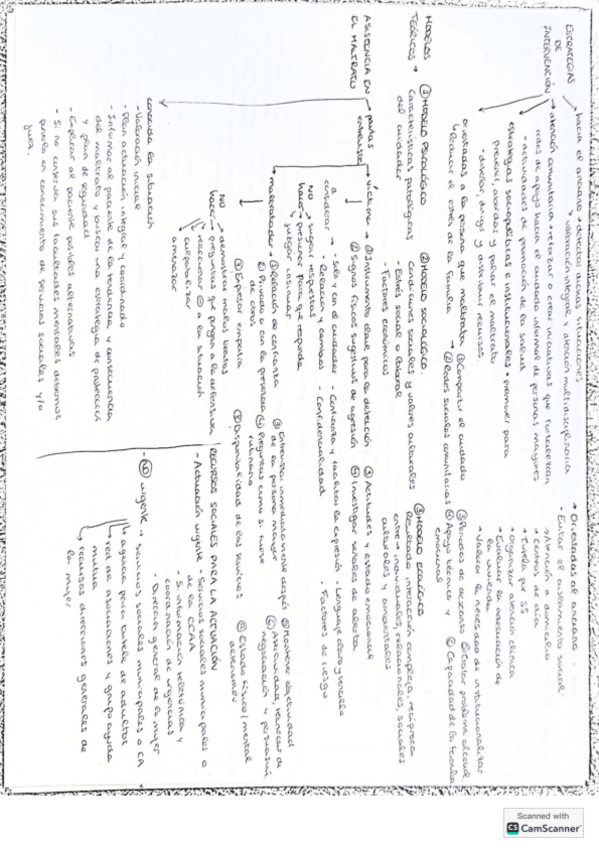 ESTRATEGIAS DE INTERVENCIÓN
→ hacia el anciano → detecta dichas situaciones
↳ valoración integral y atención multidisciplinaria
→ atención comunitaria → reforzar o crear iniciativas que fortalezcan
redes de apoyo hacia el cuidado informal de personas mayores
- actividades de promoción de la salud
estrategias sociopolíticas e institucionales → promover para
prevenir, abordar y paliar el maltrato
- diseñar, dirigir y distribuir recursos.
orientadas a la persona que maltrata
↳ Reducir el estrés de la familia →
① Compartir el cuidado
② Redes sociales comunitarias
③ Periodos de descanso
④ Apoyo técnico y emocional
⑤ Tratar problema alcohol
⑥ Capacidad de la familia
→ Orientadas al anciano
- Evitar el aislamiento social
→ Atención a domicilio
→ centros de día
→ Tutela por SS
→ Organizar atención clínica
→ Evaluar la adecuación de la vivienda
→ Valorar la necesidad de institucionalizar
MODELOS TEÓRICOS →
① MODELO PSICOLÓGICO
Características patológicas
del cuidador
② MODELO SOCIOLÓGICO
Condiciones sociales y valores culturales
- Estrés social o laboral
- Factores económicos
③ MODELO ECOLÓGICO
Resultado interacción compleja, recíproca
entre → individuales, relacionales, sociales
culturales y ambientales
ASISTENCIA EN EL MALTRATO
→ pautas entrevista
→ víctima →
① Instrumento clave para la detección
② Signos físicos sugestivos de agresión
③ Actitudes y estado emocional
⑤ Investigar señales de alerta
a considerar →
- Solo y con el cuidador
- Relación y cambios
- Confianza y facilitar la expresión
- Confidencialidad
- Lenguaje claro y sencillo
- Factores de riesgo
NO hacer →
sugerir respuestas
presionar para que responda
juzgar, insinuar
→ maltratador →
① Relación de confianza
② Privado o con la presencia de otros
③ Entrevistar inmediatamente después
de la persona mayor
④ Preguntas como si fuese rutinario
⑤ Mantener objetividad
⑥ Asertividad, técnicas de
negociación y persuasión
① Expresar empatía
② Disponibilidad de los servicios
③ Estado físico / mental deteriorado
NO hacer →
demostrar malos tratos
preguntas que ponga a la defensiva
reaccionar ⊖ a la situación
culpabilizar
amenazar
conocida la situación
- Valoración inicial
- Plan actuación integral y coordinado
- Informar al paciente de la tendencia y consecuencia
del maltrato y buscar una estrategia de protección
y plan de seguridad
- Explicar al paciente posibles alternativas
- Si no conserva sus facultades mentales debemos
ponerlo en conocimiento de servicios sociales y/o
juez.
RECURSOS SOCIALES PARA LA ACTUACIÓN
- Actuación urgente →
- Servicios sociales municipales o
de la CCAA
- S. información telefónica y
coordinación de urgencias
- Dirección general de la mujer
- NO urgente →
servicios sociales municipales o CA
agencia para tutela de adultos
red de asociaciones y grupo ayuda
mutua
recursos direcciones generales de
la mujer
Scanned with
CS CamScanner